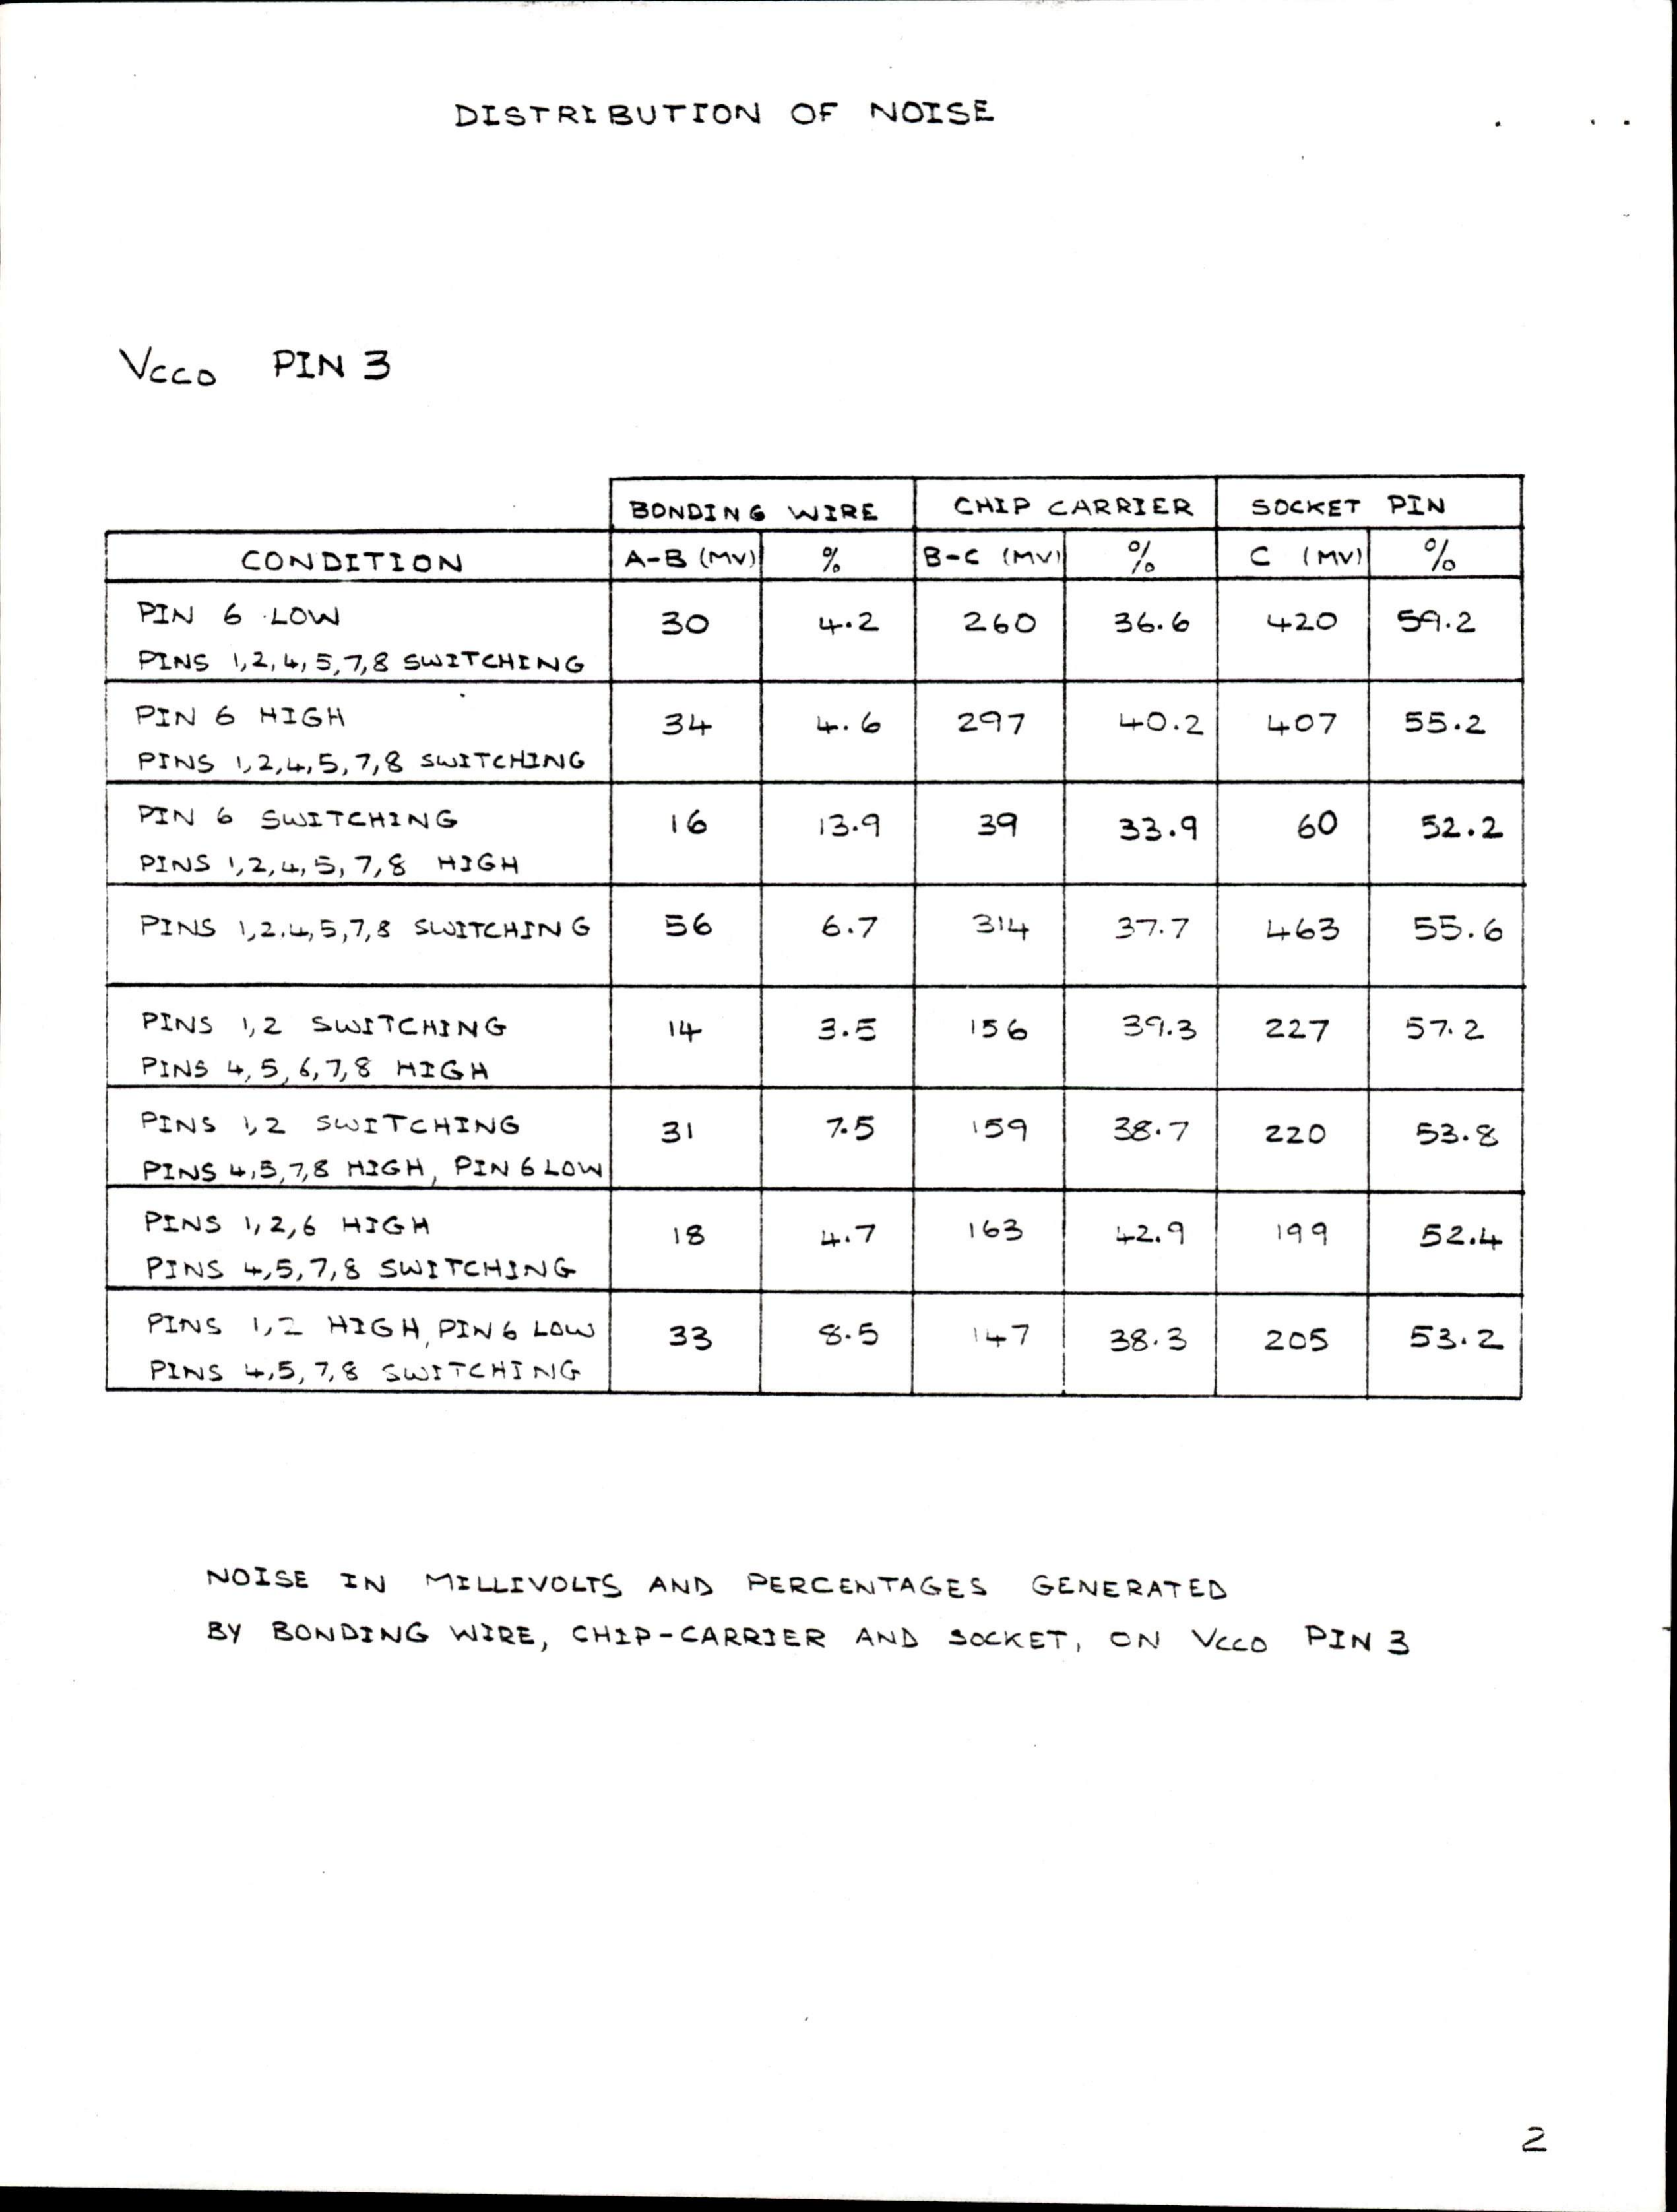 DISTRIBUTION OF NOISE
VCCO PIN 3
BONDING WIRE CHIP CARRIER SOCKET PIN
CONDITION A-B (MV) % B-C (MV) % C (MV) %
PIN 6 LOW
PINS 1,2,4,5,7,8 SWITCHING 30 4.2 260 36.6 420 59.2
PIN 6 HIGH
PINS 1,2,4,5,7,8 SWITCHING 34 4.6 297 40.2 407 55.2
PIN 6 SWITCHING
PINS 1,2,4,5,7,8 HIGH 16 13.9 39 33.9 60 52.2
PINS 1,2.4,5,7,8 SWITCHING 56 6.7 314 37.7 463 55.6
PINS 1,2 SWITCHING
PINS 4,5,6,7,8 HIGH 14 3.5 156 39.3 227 57.2
PINS 1,2 SWITCHING
PINS 4,5,7,8 HIGH, PIN 6 LOW 31 7.5 159 38.7 220 53.8
PINS 1,2,6 HIGH
PINS 4,5,7,8 SWITCHING 18 4.7 163 42.9 199 52.4
PINS 1,2 HIGH, PIN 6 LOW
PINS 4,5,7,8 SWITCHING 33 8.5 147 38.3 205 53.2
NOISE IN MILLIVOLTS AND PERCENTAGES GENERATED
BY BONDING WIRE, CHIP-CARRIER AND SOCKET, ON VCCO PIN 3
2